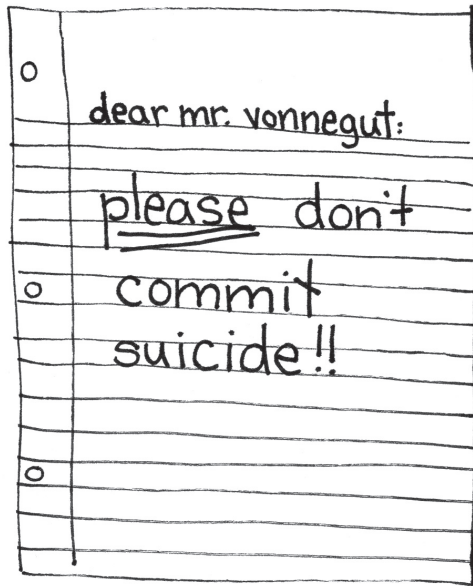 dear mr. vonnegut:
please don't
commit
suicide!!